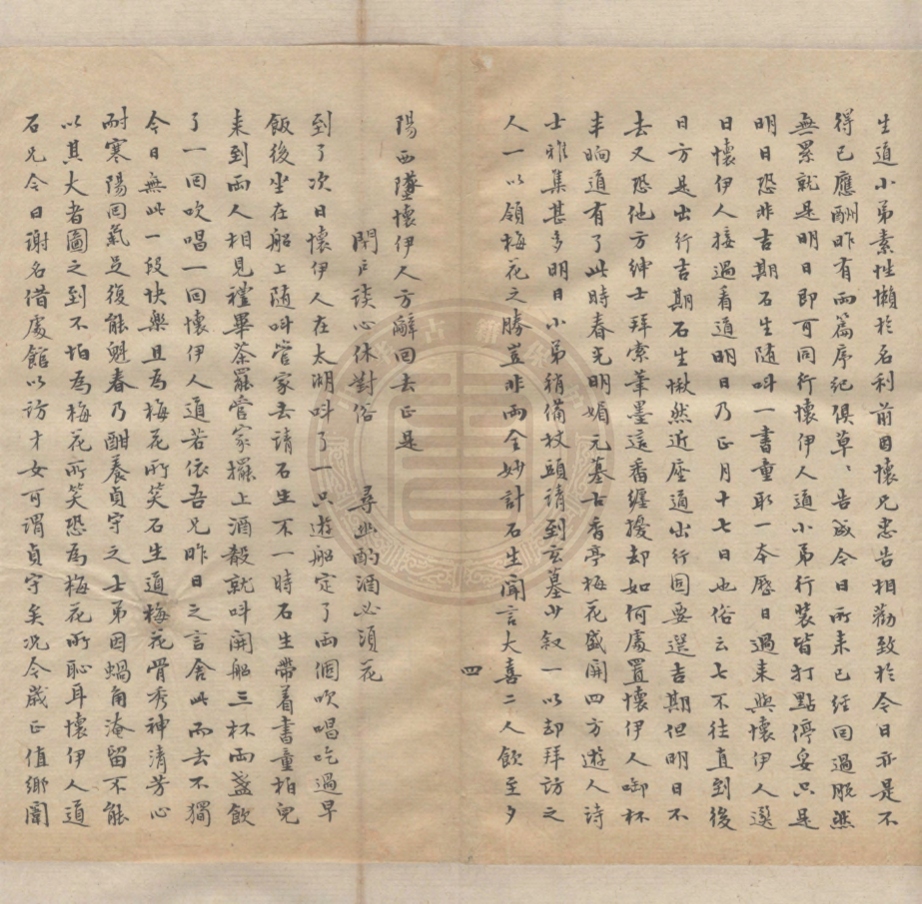 生道小弟素性懶於名利前因懷兄忠告相勸致於今日亦是不
得已應酬昨有兩篇序纪俱草、告成今日所来已經回過脫然
無累就是明日即可同行懷伊人道小弟行裝皆打點停妥只是
明日恐非吉期石生随呌一書童取一本曆日過来與懷伊人選
日懷伊人接過看道明日乃正月十七日也俗云七不往直到後
日方是出行吉期石生愀然近座道出行固要選吉期但明日不
去又恐他方紳士拜索筆墨這番纏擾却如何處置懷伊人啣杯
半晌道有了此時春光明媚元墓古香亭梅花盛開四方遊人詩
士雅集甚多明日小弟稍備杖頭請到玄墓少叙一以却拜訪之
人一以領梅花之勝豈非兩全妙計石生聞言大喜二人飲至夕
四
陽西墜懷伊人方辭回去正是
閉戶談心休對俗 尋幽酌酒必須花
到了次日懷伊人在太湖呌了一只遊船定了兩個吹唱吃過早
飯後坐在船上随呌管家去請石生不一時石生帶着書童柏兒
来到兩人相見禮畢茶罷管家擺上酒殽就呌開船三杯兩盞飲
了一回吹唱一回懷伊人道若依吾兄昨日之言舍此而去不獨
今日無此一段快樂且為梅花所笑石生道梅花骨秀神清芳心
耐寒陽回氣足復能魁春乃酣養貞守之士弟因蝸角淹留不能
以其大者圖之到不怕為梅花所笑恐為梅花所恥耳懷伊人道
石兄今日謝名借處館以訪才女可謂貞守矣况今歲正值鄉闈